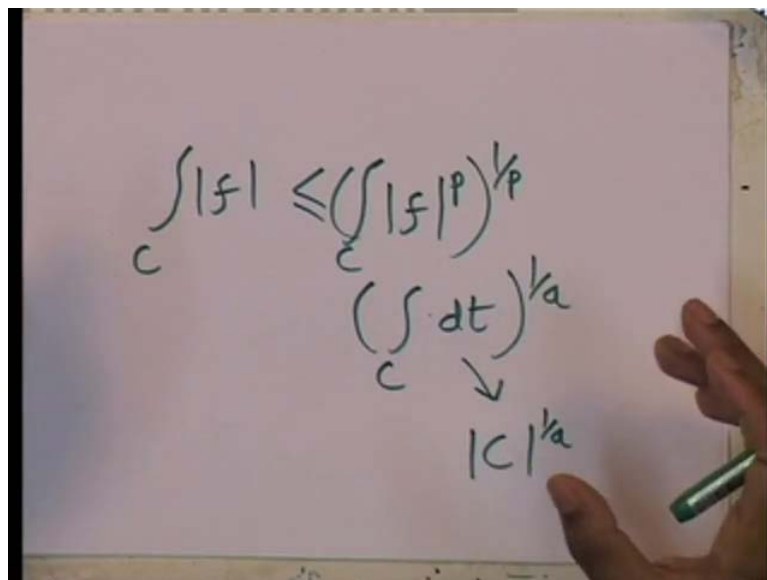 ∫_C |f| ≤ (∫_C |f|^p)^{1/p}
(∫_C dt)^{1/q}
↘
|C|^{1/q}